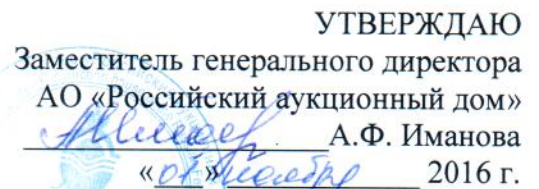 УТВЕРЖДАЮ
Заместитель генерального директора
АО «Российский аукционный дом»
А.Ф. Иманова
«01» ноября 2016 г.